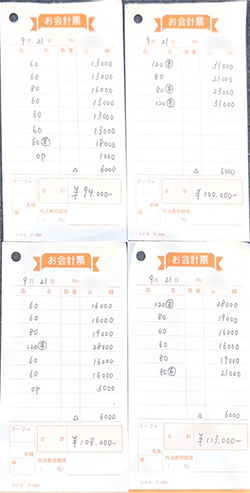 お会計票
9月 21日 No.
品名 数量 金額
60 13000
60 13000
60 16000
60 13000
60 13000
60 13000
80 18000
OP 1000
△ 6000
テーブル
合計 ¥94.000-
名様
内消費税額等
( %)
お会計票
9月 21日 No.
品名 数量 金額
120 31000
80 21000
80 23000
120 31000
△ 6000
テーブル
合計 ¥100.000-
名様
内消費税額等
( %)
お会計票
9月 21日 No.
品名 数量 金額
60 16000
60 16000
80 19000
120 28000
60 16000
60 16000
OP 3000
△ 6000
テーブル
合計 ¥108.000-
名様
内消費税額等
( %)
お会計票
9月 21日 No.
品名 数量 金額
120 28000
80 19000
60 16000
60 16000
80 19000
80 21000
△ 6000
テーブル
合計 ¥113.000-
名様
内消費税額等
( %)